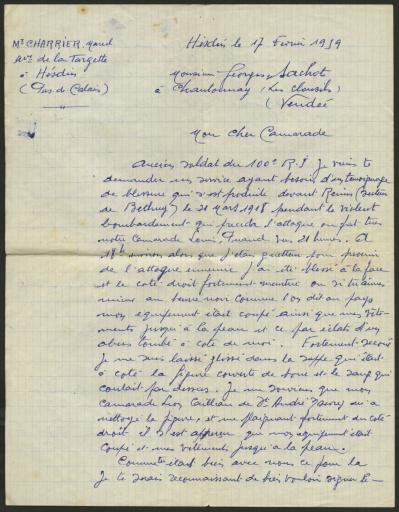 Mr CHARRIER Marcel
de la Targette
à Hesdin
(Pas de Calais)
Hesdin le 17 Février 1959
Monsieur Georges Sachot
à Chantonnay (Les Clouzils)
(Vendée)
Mon Cher Camarade
Ancien soldat du 100e R.I Je viens te
demander un service ayant besoin d'un témoignage
de blessure qui s'est produite devant Reims (Secteur
de Betheny) le 21 Mars 1918 pendant le violent
bombardement qui précéda l'attaque ou fut tué
notre Camarade Louis vers 21 heures. A
18h environ alors que j'étais guetteur pour prévenir
de l'attaque ennemie j'ai été blessé à la face
et le coté droit fortement
nous comme l'on dit au pays
mon équipement était coupé ainsi que mes vête-
ments jusqu'à la peau et ce par éclats d'un
obus tombé à coté de moi. Fortement
Je me suis laissé glissé dans la sappe qui était
à coté la figure couverte de boue et le sang qui
coulait par dessus. Je me souviens que mon
Camarade de St André m'a
nettoyé la figure, et me plaignant fortement du coté
droit il s'est apperçu que mon équipement était
coupé et mes vêtements jusqu'à la peau.
Comme tu étais bien avec nous ce jour la
Je te serais reconnaissant de bien vouloir signer le